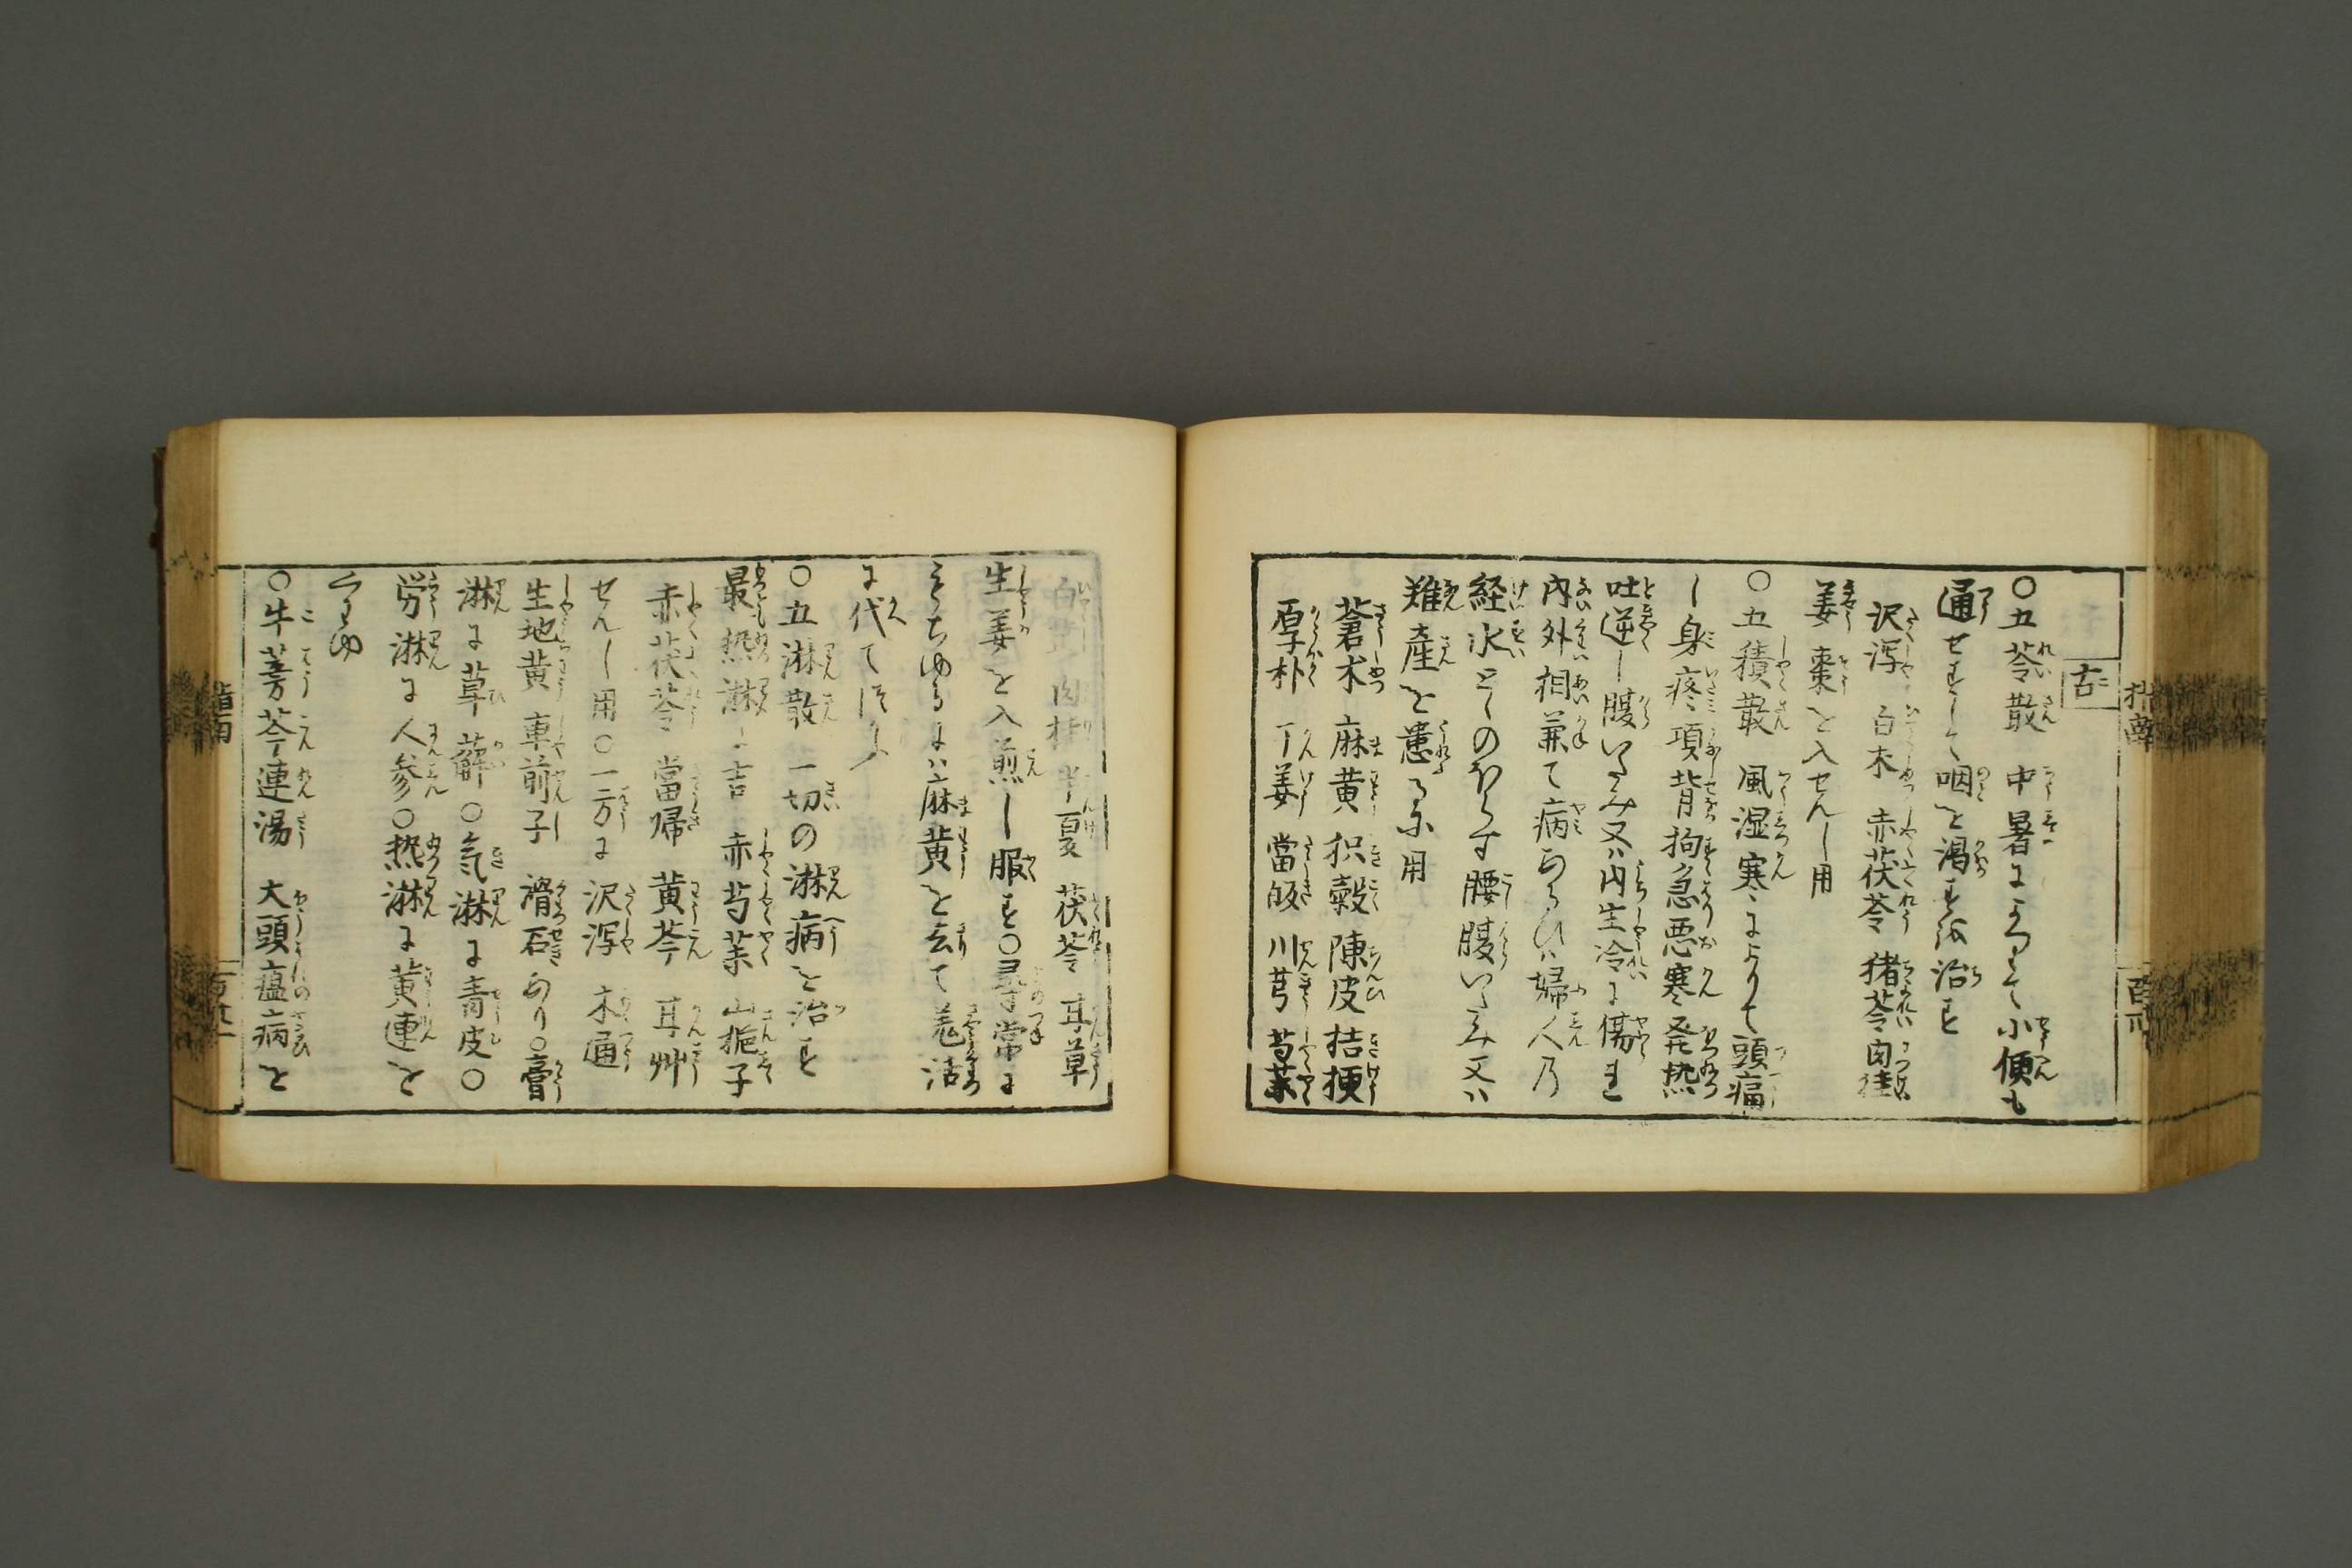 古
○五苓散 中暑により て小便も
通せずして咽を渇を治す
沢瀉 白朮 赤茯苓 猪苓 肉桂
姜 棗を入せんし用
○五積散 風湿寒によりて頭痛
し身疼項背拘急悪寒発熱
吐逆し腹いたみ又ハ内生冷に傷れ
内外相兼て病あるひハ婦人乃
経水とゝのほらす腰腹いたみ又ハ
難産を患るに用
蒼朮 麻黄 枳殻 陳皮 桔梗
厚朴 丁姜 當皈 川芎 芍薬
白芷 肉桂 半夏 茯苓 耳草
生姜を入煎し服す○尋常に
もちゆるにハ麻黄を去て羗活
に代て
○五淋散 一切の淋病を治す
最熱淋に吉 赤芍薬 山梔子
赤茯苓 當帰 黄芩 耳艸
せんし用○一方に 沢瀉 木通
生地黄 車前子 滑石あり○膏
淋に萆薢○気淋に青皮○
労淋に人参○熱淋に黄連を
くわゆ
○牛蒡芩連湯 大頭瘟病を
指南